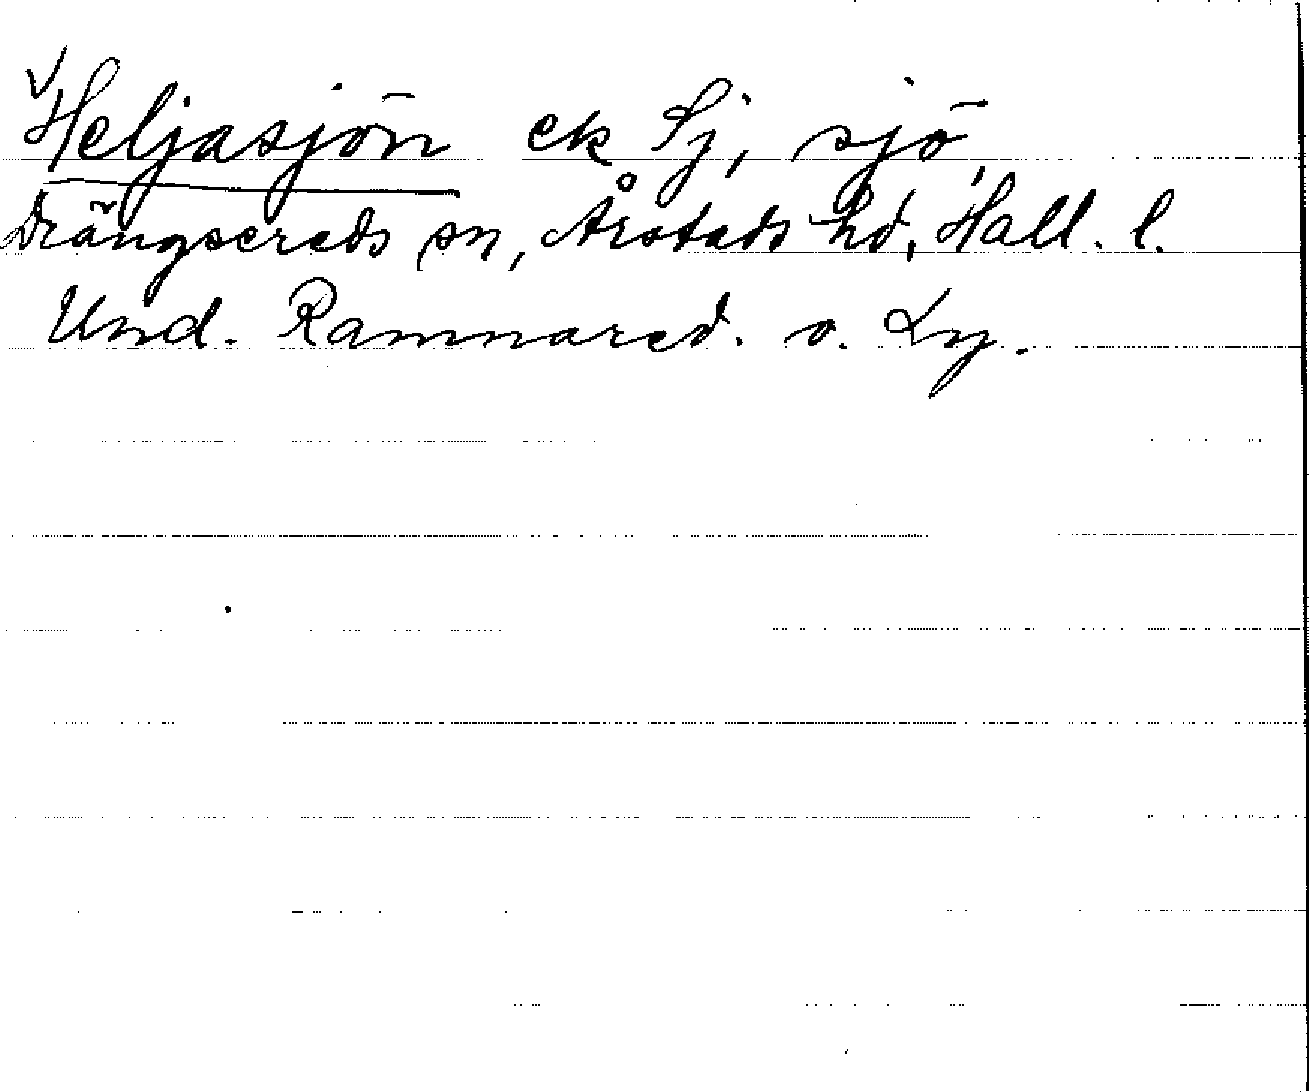 Heljasjön ek Sj, sjö,
Drängsereds sn, Årstads hd, Hall. l.
Und. Ramnared. o. Ly.